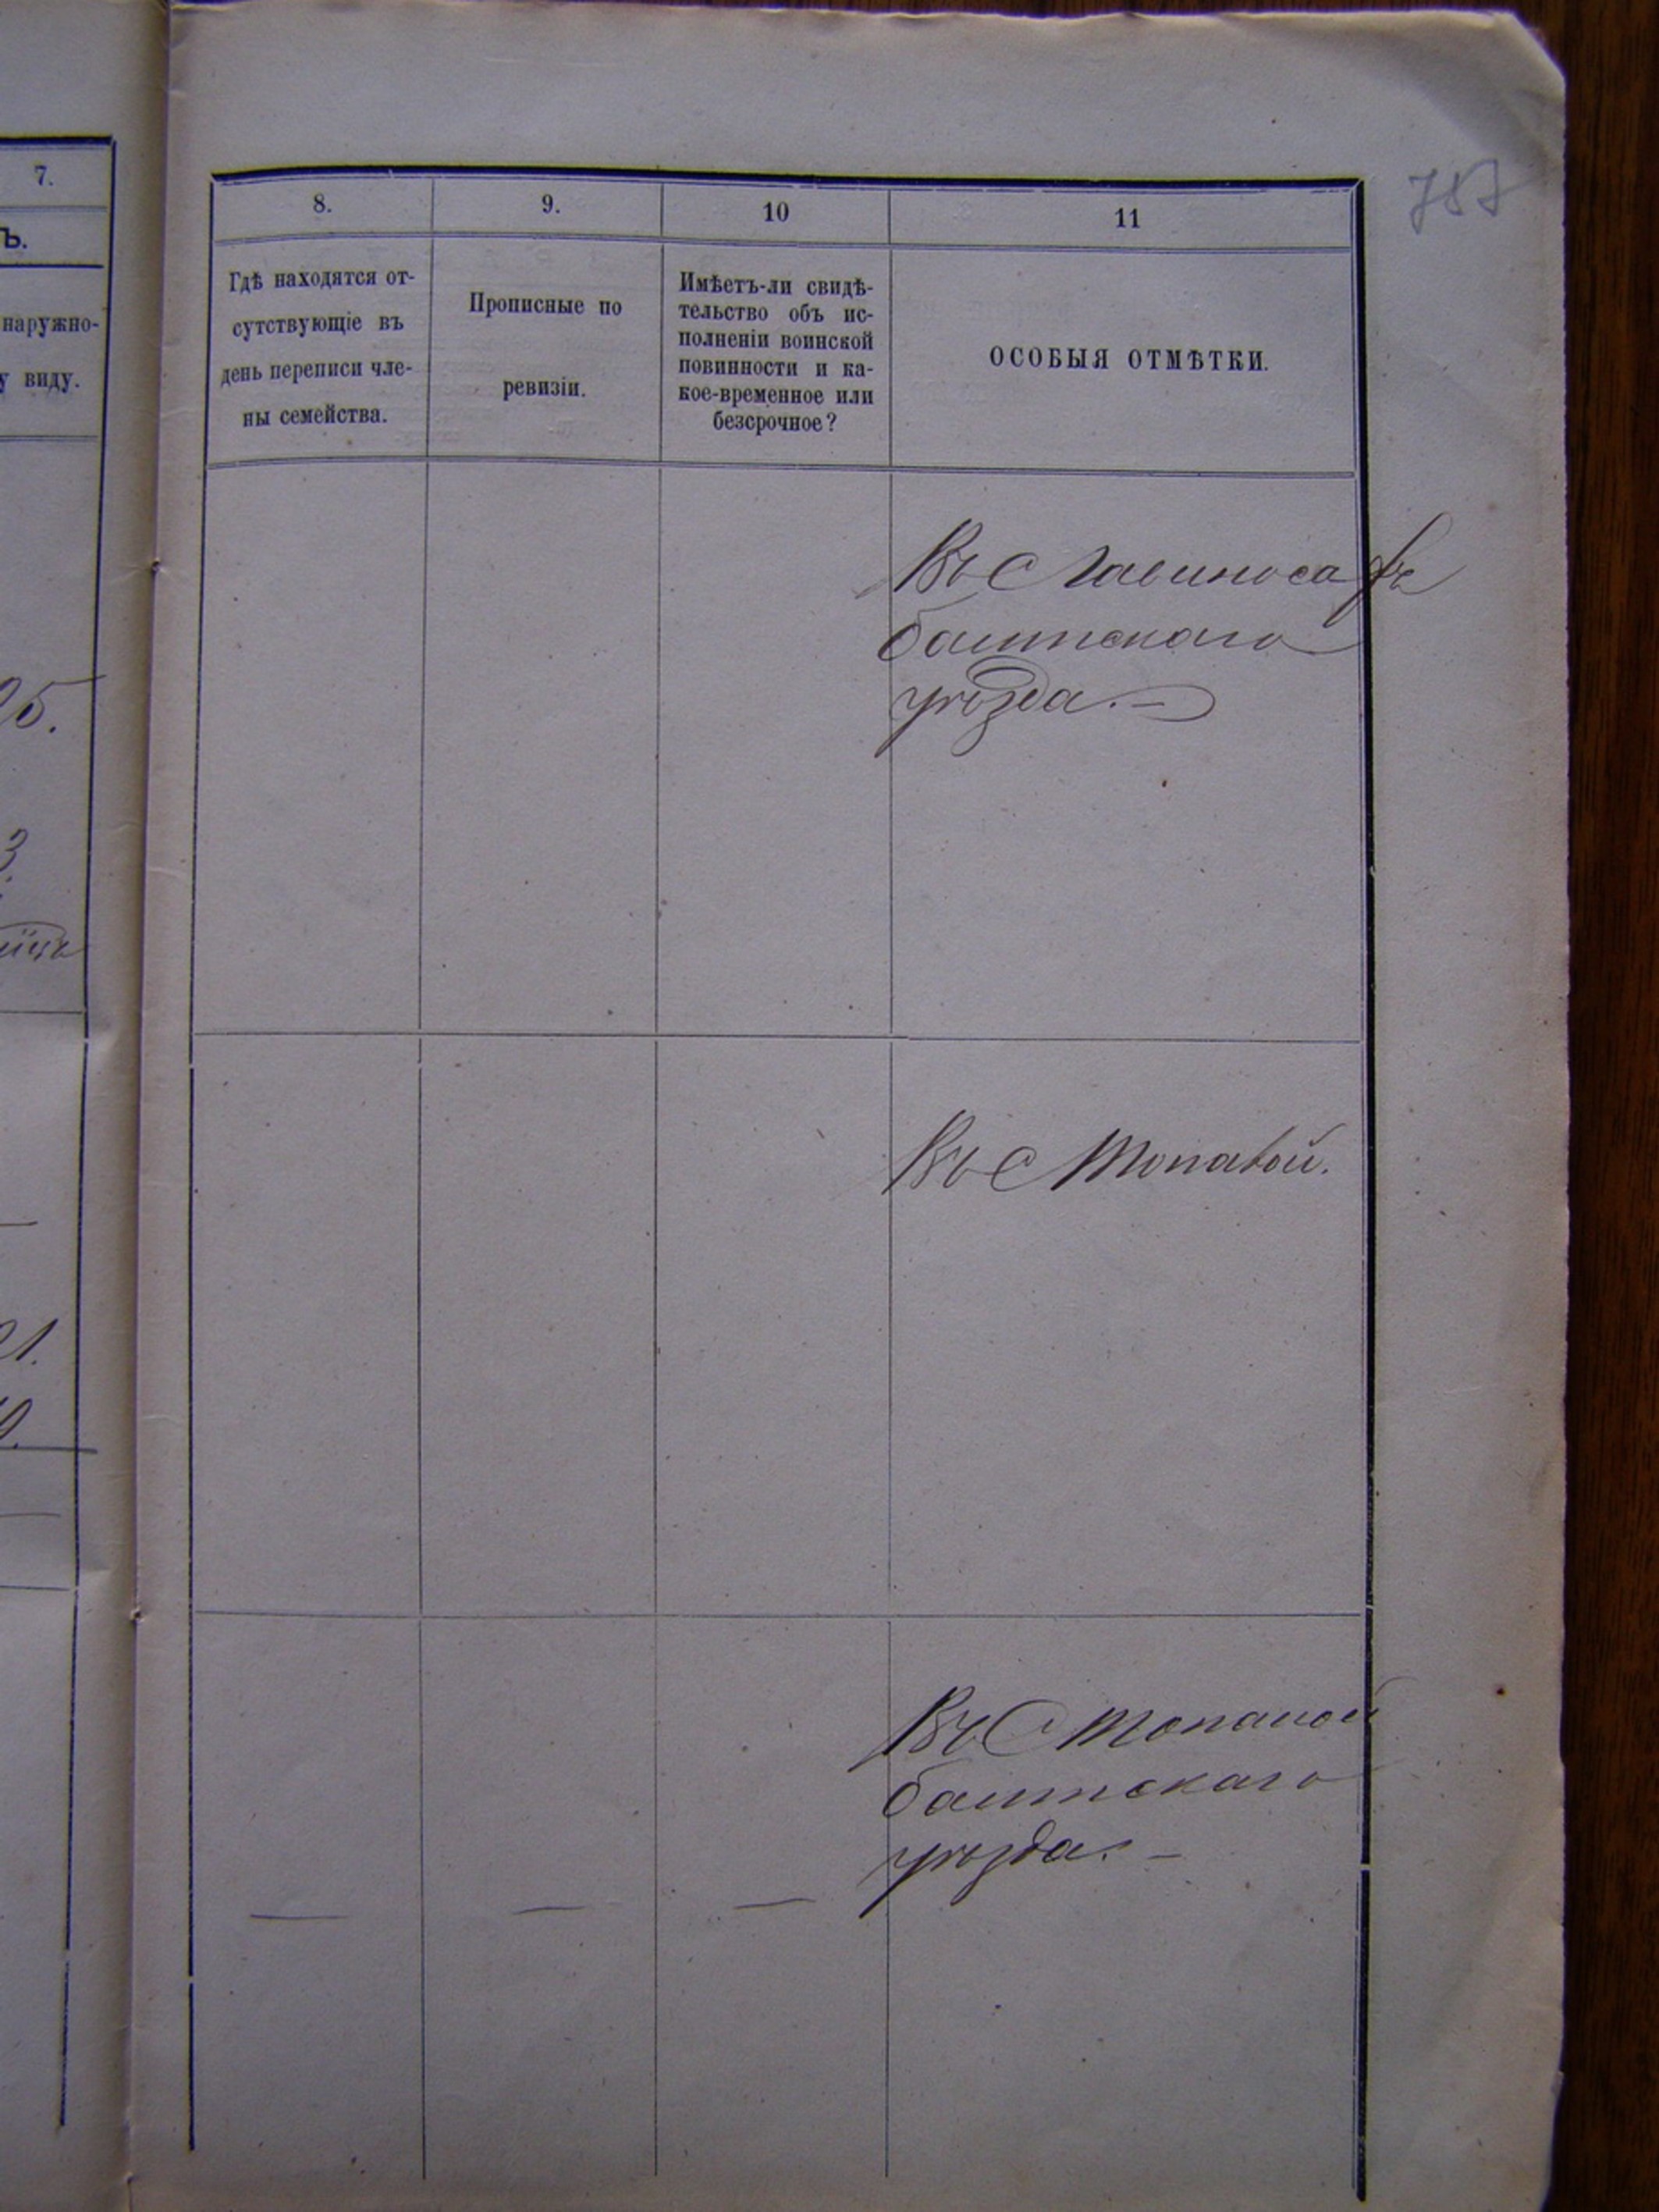 7.
8.
9.
10
11
Ъ.
наружно-
у виду.
Гдѣ находятся от-
сутствующіе въ
день переписи чле-
ны семейства.
Прописные по
ревизіи.
Имѣетъ-ли свидѣ-
тельство объ ис-
полненіи воинской
повинности и ка-
кое-временное или
безсрочное?
ОСОБЫЯ ОТМѢТКИ.
Въ С
балтскаго
уѣзда. —
Въ С Топалой.
Въ С Топалой
балтскаго
уѣзда. —